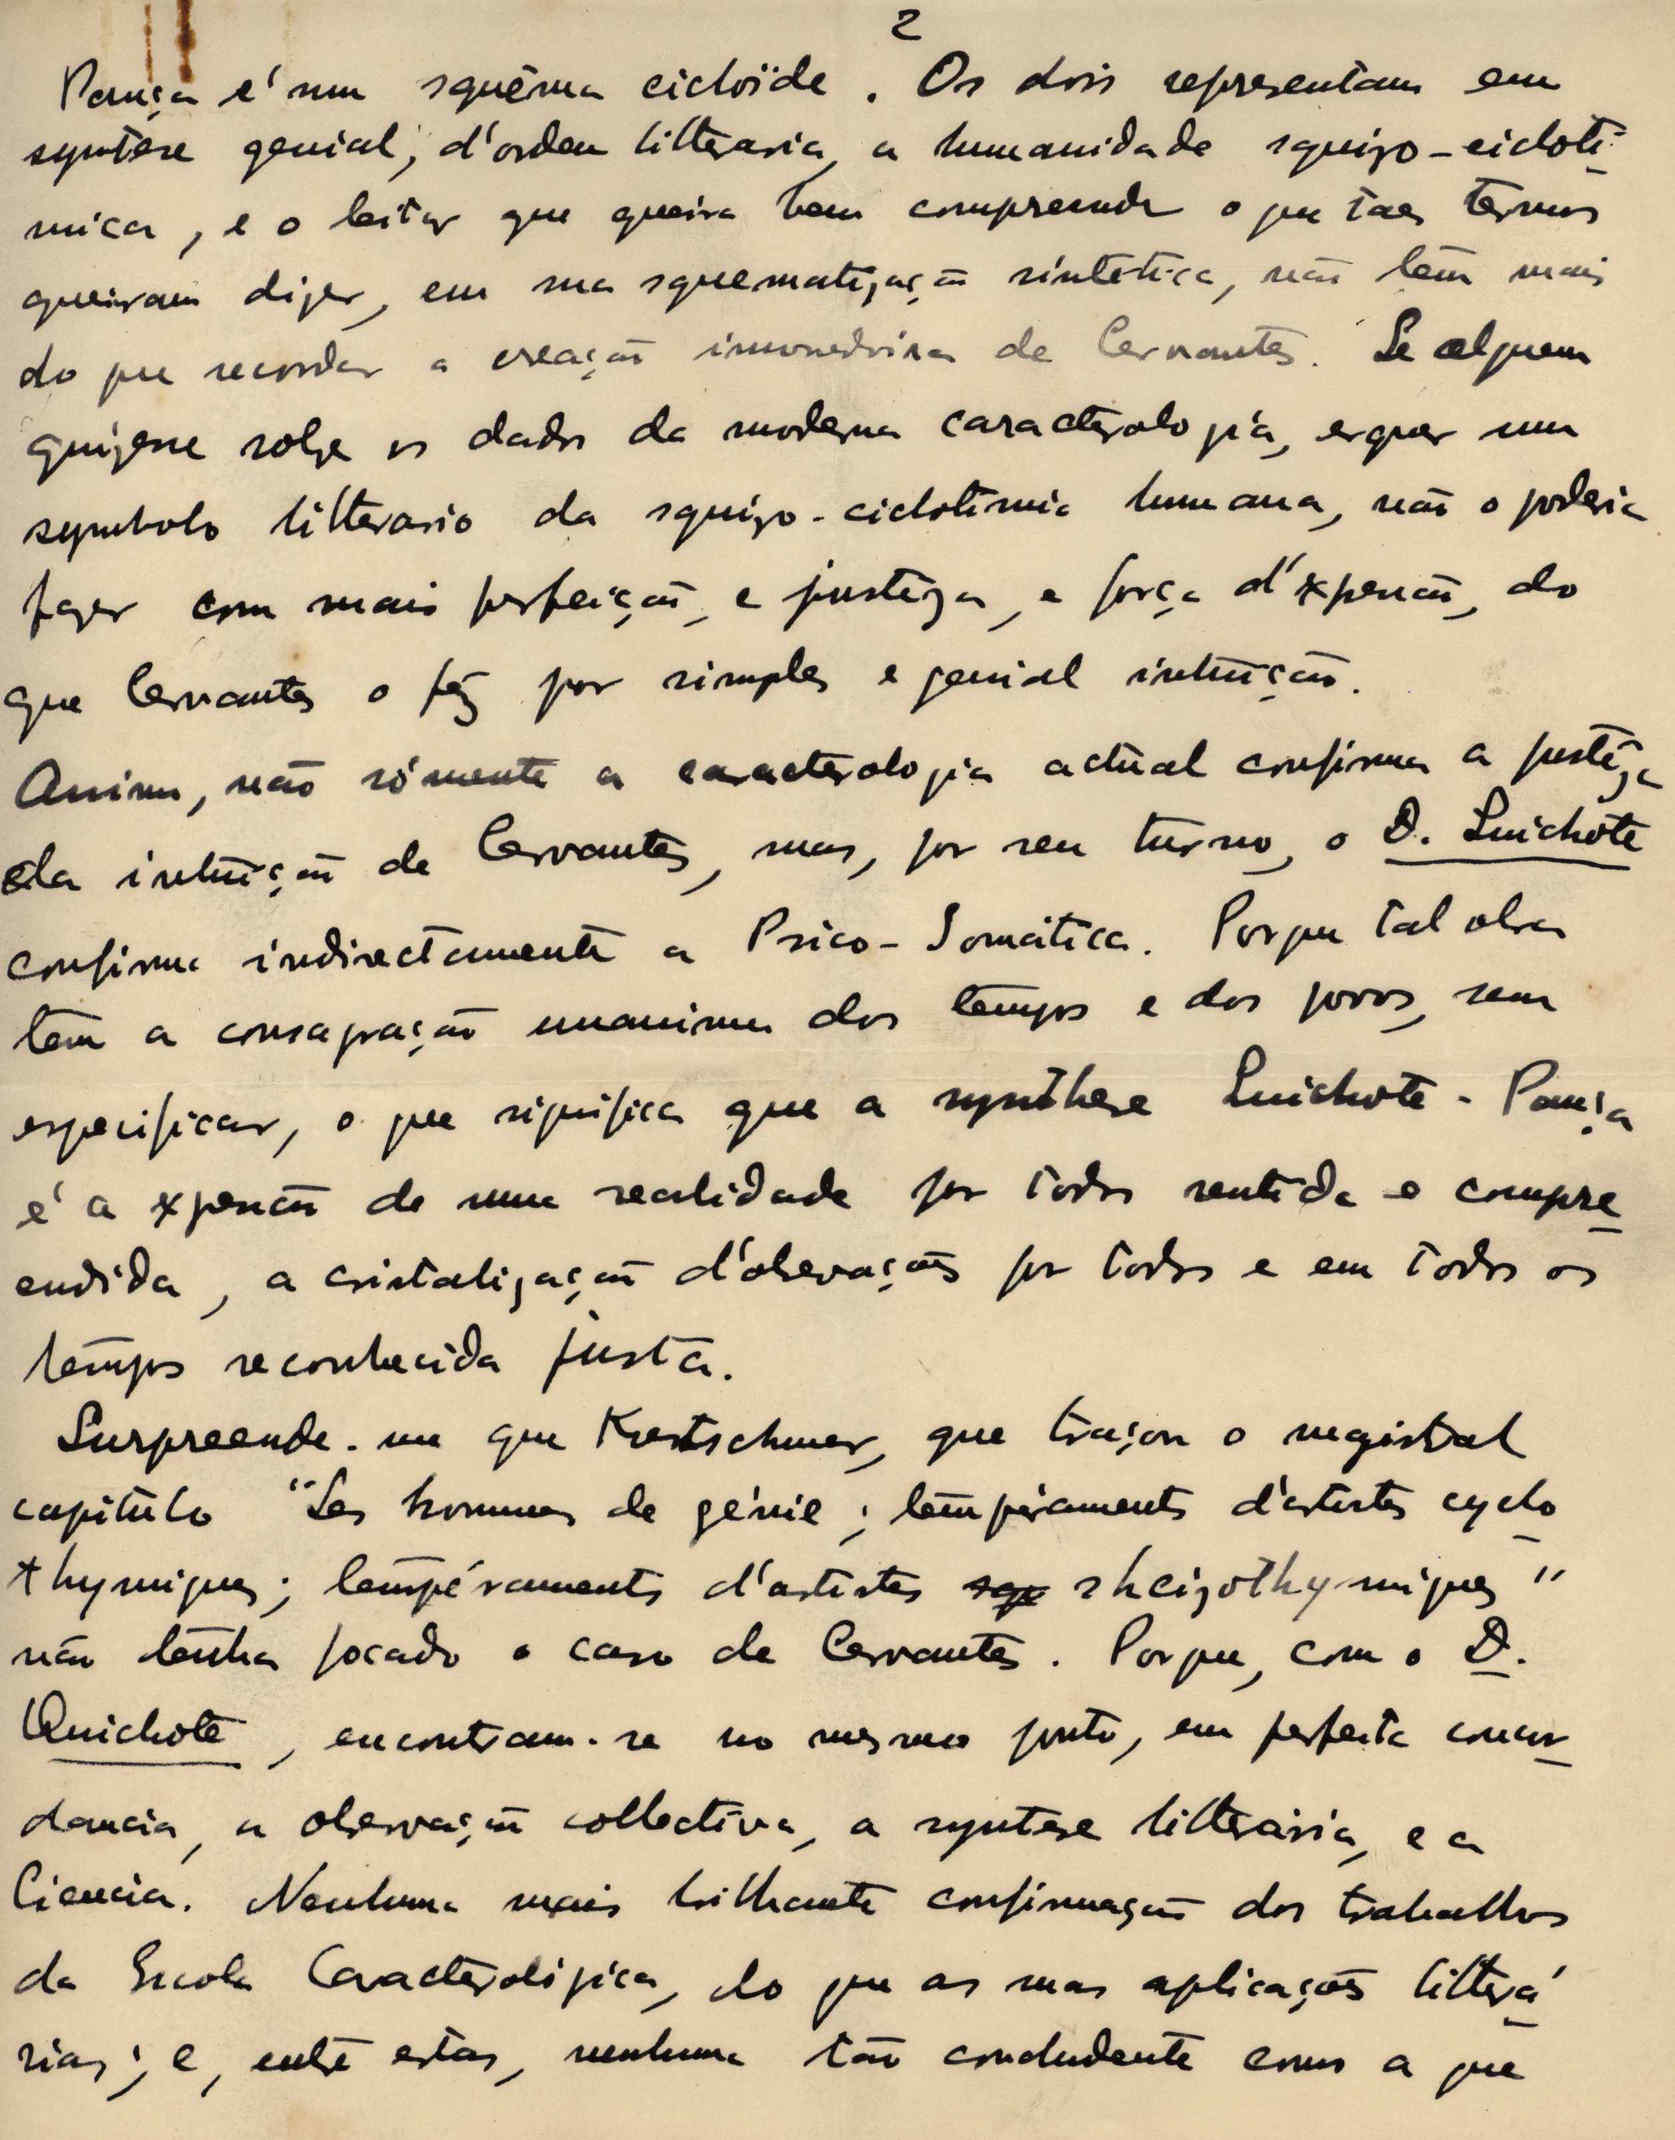 2
Pança é um squêma cicloïde. Os dois representam em
syntese genial, d'ordem litteraria, a humanidade squizo-cicloti-
mica, e o leitor que queira bem compreender o que taes termos
queiram dizer, em sua squematização sintetica, não tem mais
do que recordar a creação imorredoira de Cervantes. Se alguem
quizesse sobre os dados da moderna caracterologia, erguer um
symbolo litterario da squizo-ciclotimia humana, não o poderia
fazer com mais perfeição, e justeza, e força d'xpressão, do
que Cervantes o fez por simples e genial intuição.
Assim, não sómente a caracterologia actual confirma a justeza
da intuição de Cervantes, mas, por seu turno, o D. Quichote
confirma indirectamente a Psico-Somática. Porque tal obra
tem a consagração unanime dos tempos e dos povos, sem
especificar, o que significa que a synthese Quichote-Pança
é a xpressão de uma realidade por todos sentida e compre-
endida, a cristalização d'observações por todos e em todos os
tempos reconhecida justa.
Surpreende-me que Kretschmer, que traçou o magistral
capitulo "Les hommes de génie; tempéraments d'artistes cyclo
thymiques; tempéraments d'artistes sheizothymiques"
não tenha focado o caso de Cervantes. Porque, com o D.
Quichote, encontram-se no mesmo ponto, em perfeita concor-
dancia, a observação collectiva, a syntese litteraria, e a
Ciencia. Nenhuma mais brilhante confirmação dos trabalhos
da Escola Caracterológica, do que as suas aplicações litterá-
rias; e, entre estas, nenhuma tão concludente como a que